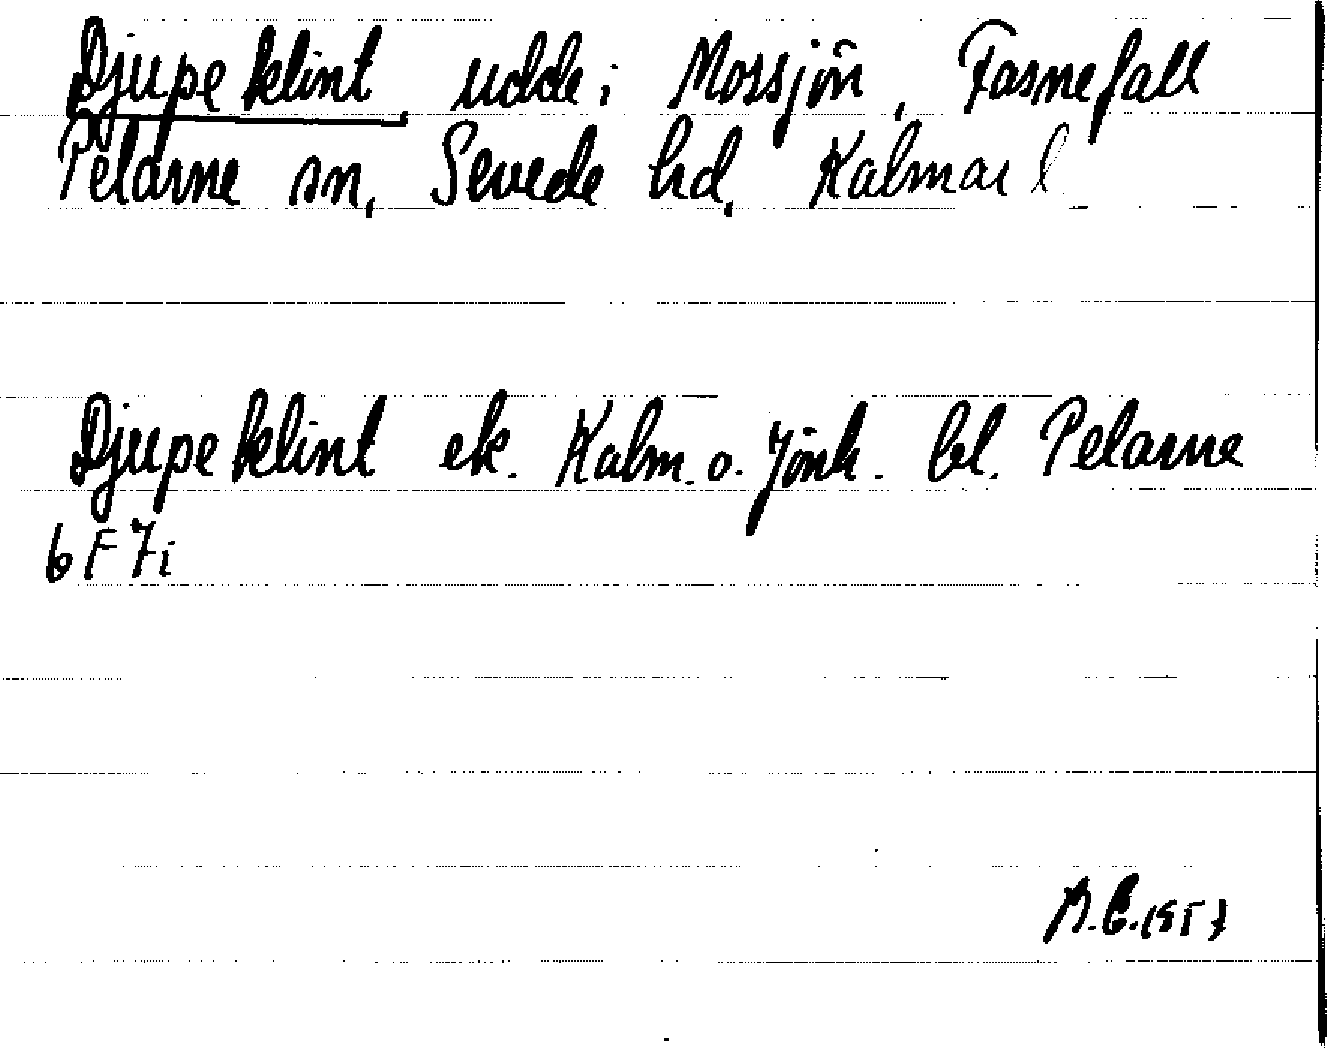 Djupeklint udde i Mossjön, Fasnefall
Pelarne sn, Sevede hd, Kalmar l
Djupeklint ek. Kalm. o. Jönk. bl. Pelarne
6F7i
B.E. 1957